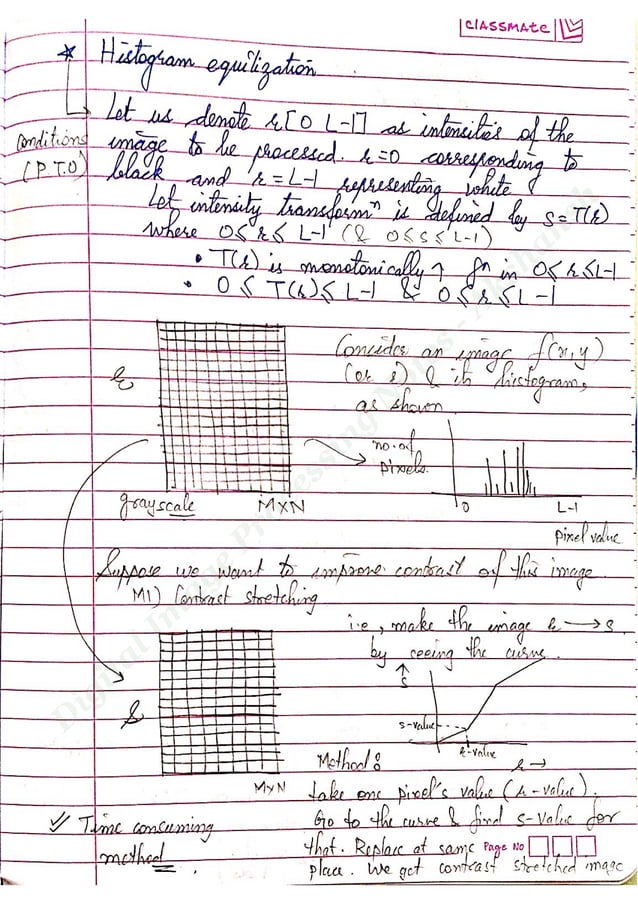 classmate
* Histogram equilization
Let us denote r [0 L-1] as intensities of the
Conditions
(P T.O)
image to be processed. r=0 corresponding to
black and r=L-1 representing white.
Let intensity transformⁿ is defined by s=T(r)
where 0≤r≤L-1 (& 0≤s≤L-1)
• T(r) is monotonically ↑ fⁿ in 0≤r≤L-1
• 0 ≤ T(r) ≤ L-1 & 0≤r≤L-1
Consider an image f(x,y)
(or r) & its histogram,
as shown
r
no. of
pixels.
0 L-1
pixel value
grayscale MXN
Suppose we want to improve contrast of this image.
M1) Contrast stretching
i.e, make the image r → s
by seeing the curve.
s
S
s-value
r-value
r→
MXN
Method:
take one pixel's value (r-value).
Go to the curve & find s-value for
that. Replace at same
place. We get contrast stretched image
Time consuming
method
Page No
Digital Image Processing Notes -